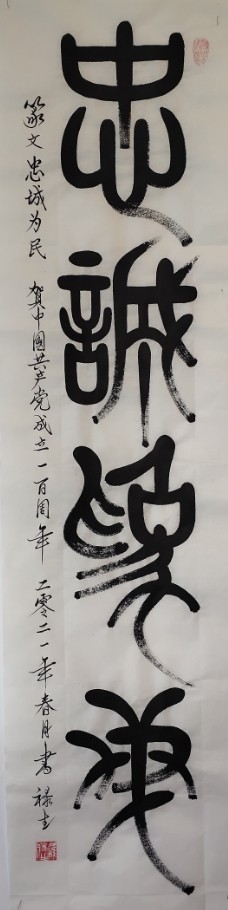 忠誠為民
篆文忠城为民 贺中国共产党成立一百周年 二零二一年春月書